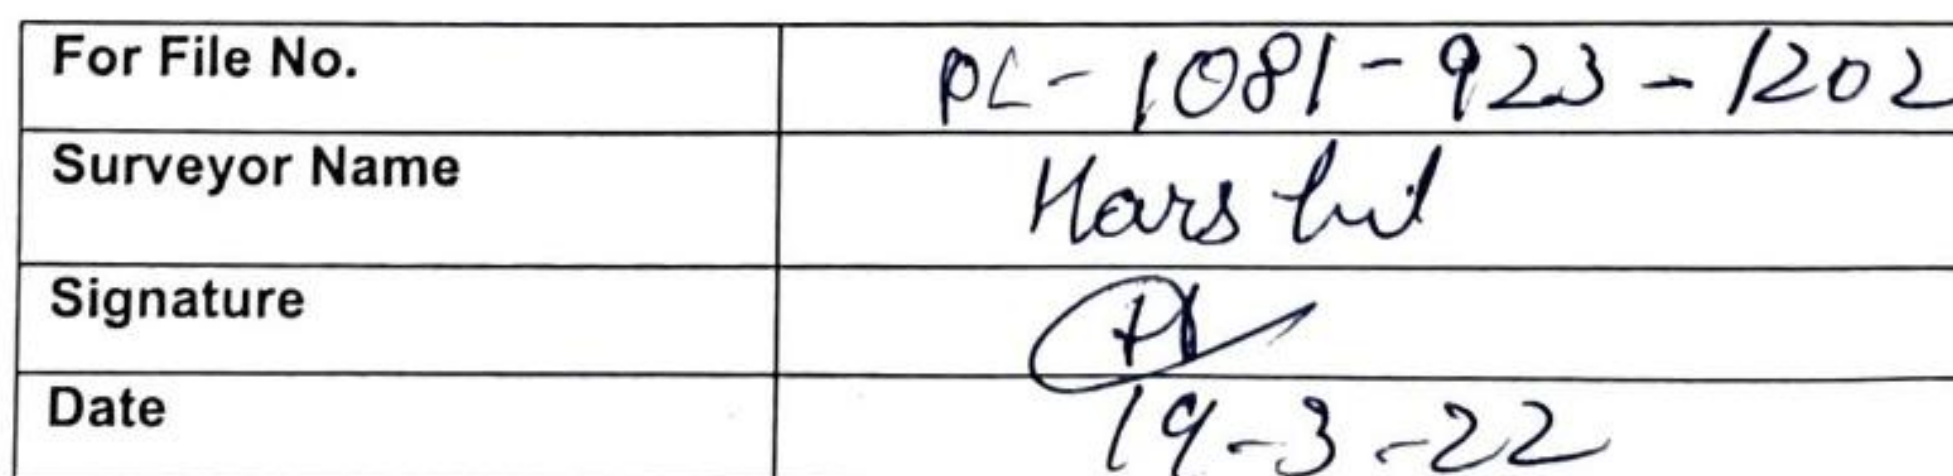 For File No. PL-1081-923-1202
Surveyor Name Harshit
Signature
Date 19-3-22